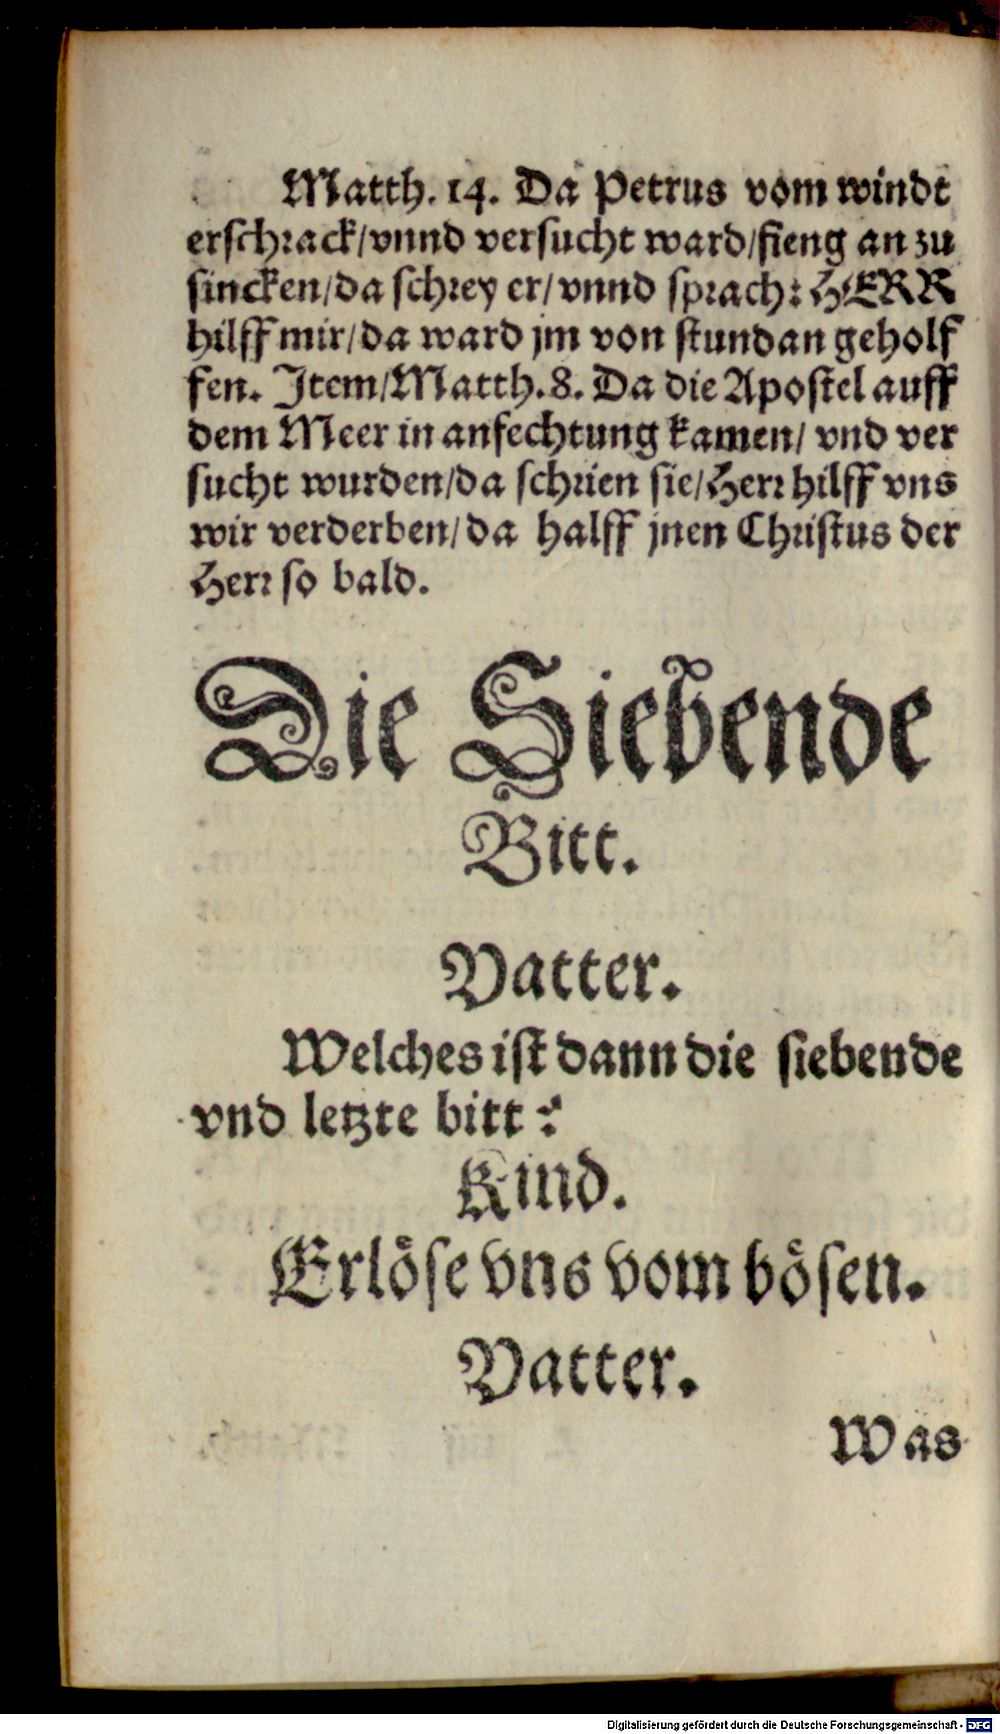 Matth. 14. Da Petrus vom windt
erschrack/vnnd versucht ward/fieng an zu
sincken/da schrey er/vnnd sprach: HERR
hilff mir/da ward jm von stundan geholf
fen. Item/Matth. 8. Da die Apostel auff
dem Meer in anfechtung kamen/ vnd ver
sucht wurden/da schrien sie/Herr hilff vns
wir verderben/da halff jnen Christus der
Herr so bald.
Die Siebende
Bitt.
Vatter.
Welches ist dann die siebende
vnd letzte bitt?
Kind.
Erlöse vns vom bösen.
Vatter.
Was
Digitalisierung gefördert durch die Deutsche Forschungsgemeinschaft - DFG